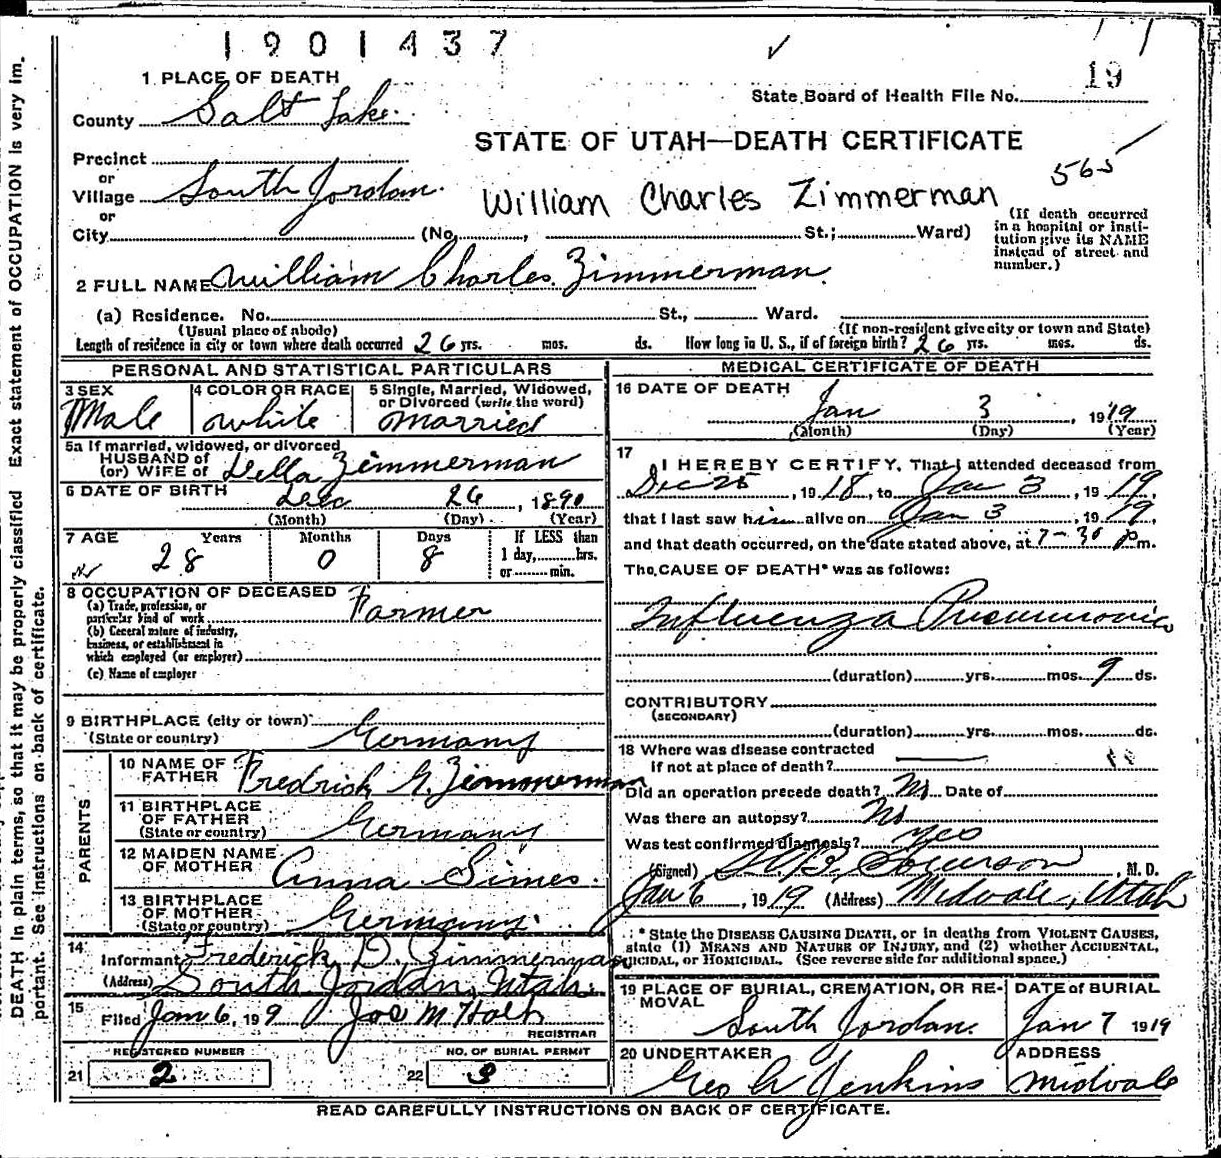 1901437
19
1 PLACE OF DEATH
State Board of Health File No.
County Salt Lake.
STATE OF UTAH—DEATH CERTIFICATE
565
Precinct
or
Village South Jordan.
William Charles Zimmerman
or
City (No. , St.; Ward)
(If death occurred in a hospital or insti-
tution give its NAME
instead of street and
number.)
2 FULL NAME William Charles Zimmerman.
(a) Residence. No. St., Ward.
(Usual place of abode) (If non-resident give city or town and State)
Length of residence in city or town where death occurred 26 yrs. mos. ds. How long in U. S., if of foreign birth? 26 yrs. mos. ds.
PERSONAL AND STATISTICAL PARTICULARS
3 SEX Male
4 COLOR OR RACE white
5 Single, Married, Widowed,
or Divorced (write the word)
Married
5a If married, widowed, or divorced
HUSBAND of
(or) WIFE of Della Zimmerman
6 DATE OF BIRTH Dec 26, 1890
(Month) (Day) (Year)
7 AGE Years Months Days If LESS than
28 0 8 1 day, hrs.
or min.
8 OCCUPATION OF DECEASED
(a) Trade, profession, or
particular kind of work Farmer
(b) General nature of industry,
business, or establishment in
which employed (or employer)
(c) Name of employer
9 BIRTHPLACE (city or town)
(State or country) Germany
PARENTS
10 NAME OF
FATHER Fredrick G. Zimmerman
11 BIRTHPLACE
OF FATHER
(State or country) Germany
12 MAIDEN NAME
OF MOTHER Anna Simes.
13 BIRTHPLACE
OF MOTHER
(State or country) Germany.
14
Informant Frederick D. Zimmerman
(Address) South Jordan, Utah.
15
Filed Jan 6, 199 Jos M Holt
REGISTRAR
REGISTERED NUMBER
21 2
NO. OF BURIAL PERMIT
22 3
MEDICAL CERTIFICATE OF DEATH
16 DATE OF DEATH
Jan 3 1919
(Month) (Day) (Year)
17
I HEREBY CERTIFY, That I attended deceased from
Dec 25, 1918, to Jan 3, 1919,
that I last saw him alive on Jan 3, 1919,
and that death occurred, on the date stated above, at 7-30 p m.
The CAUSE OF DEATH* was as follows:
Influenza Pneumonia
(duration) yrs. mos. 9 ds.
CONTRIBUTORY
(SECONDARY)
(duration) yrs. mos. ds.
18 Where was disease contracted
If not at place of death?
Did an operation precede death? No Date of
Was there an autopsy? No
Was test confirmed diagnosis? yes
(Signed) Sorenson, M. D.
Jan 6, 1919 (Address) Midvale, Utah
* State the DISEASE CAUSING DEATH, or in deaths from VIOLENT CAUSES,
state (1) MEANS AND NATURE OF INJURY, and (2) whether ACCIDENTAL,
SUICIDAL, OR HOMICIDAL. (See reverse side for additional space.)
19 PLACE OF BURIAL, CREMATION, OR RE-
MOVAL
South Jordan.
DATE of BURIAL
Jan 7 1919
20 UNDERTAKER
Geo A Jenkins
ADDRESS
Midvale
READ CAREFULLY INSTRUCTIONS ON BACK OF CERTIFICATE.
DEATH in plain terms, so that it may be properly classified Exact statement of OCCUPATION is very im-
portant. See instructions on back of certificate.